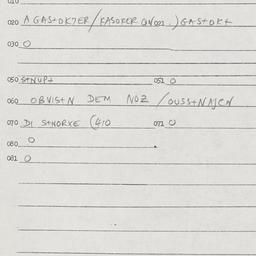 010
020 A GASTOKTER/KASOKER GN 021 .) GASTOKT
030 O
050 STNUPT 051 O
060 OBVISTN DEM NOZ /OUSSTNAJEN
070 DI STNORXE (410 071 O
080 O
081 O